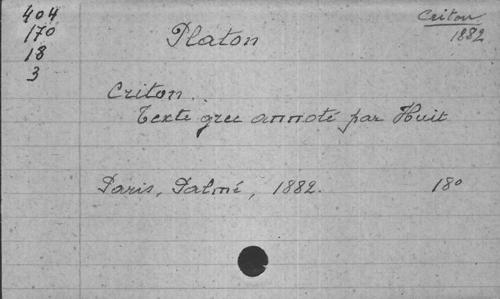 404
170
18
3
Criton
1882
Platon
Criton.
Texte grec annoté par Huit
Paris, Palmé, 1882. 18º